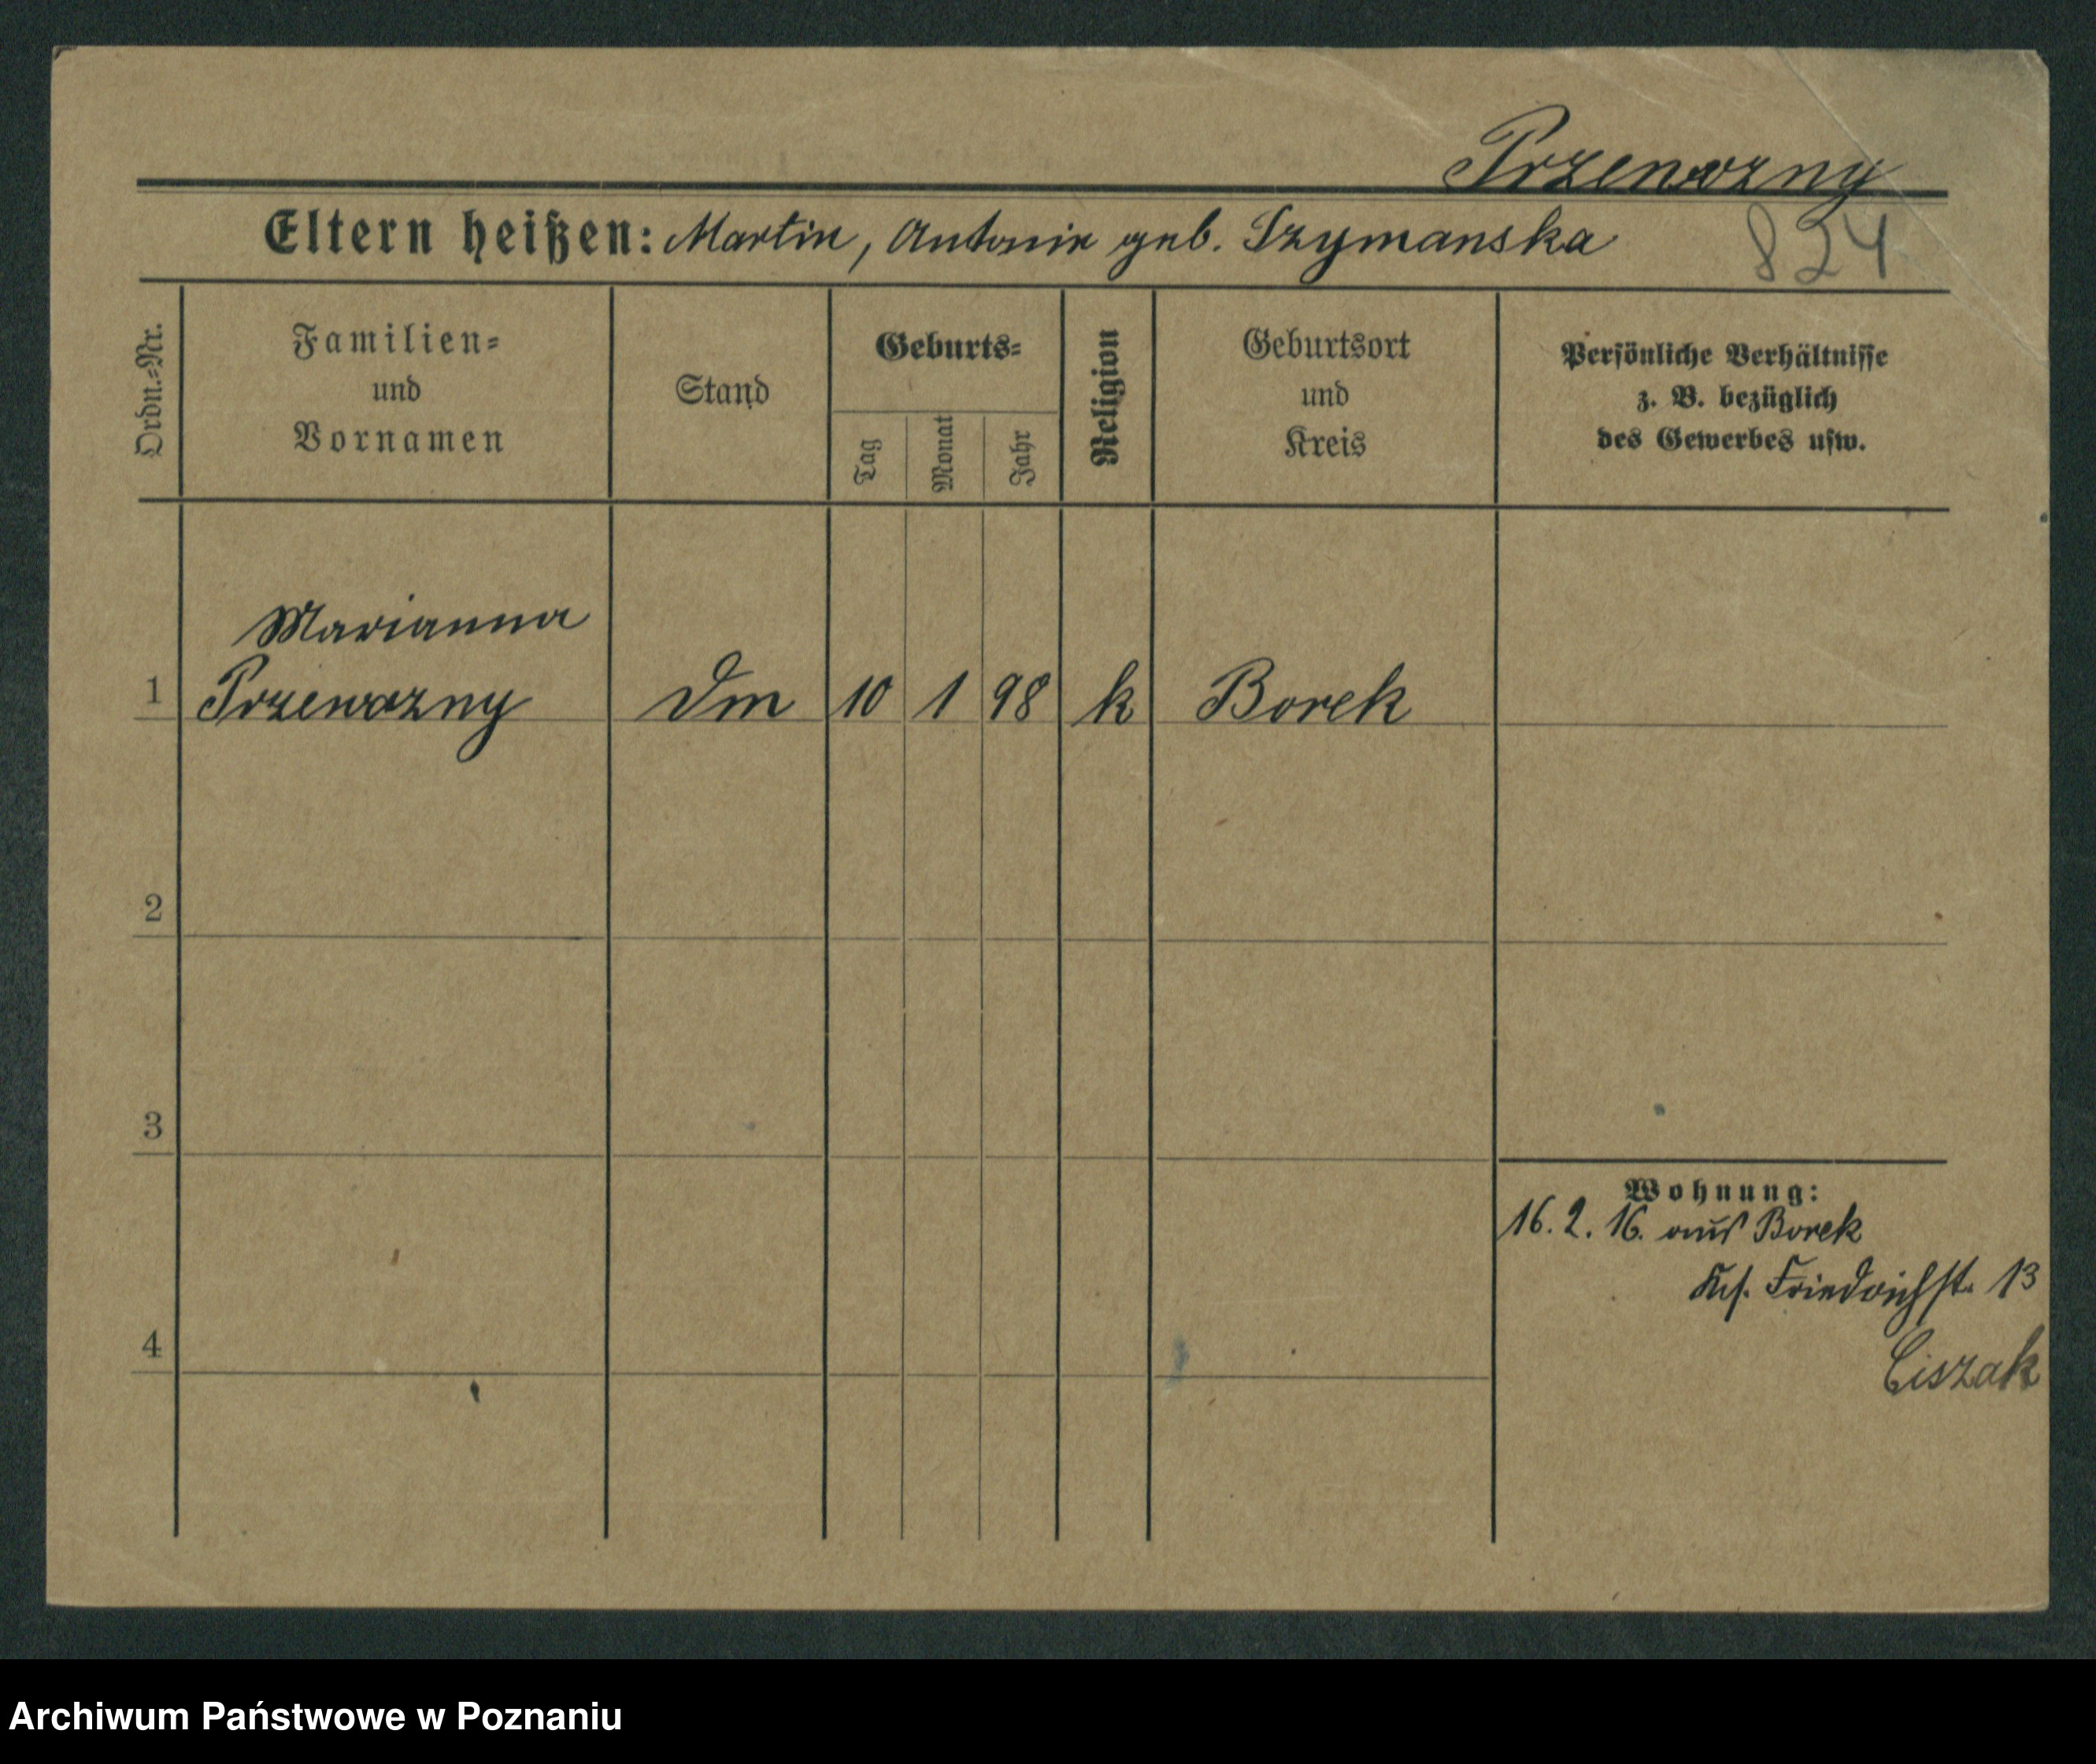 Przewozny
Eltern heißen: Martin, Antonie geb. Szymanska
824
Ordn.-Nr.
Familien-
und
Vornamen
Stand
Geburts-
Tag
Monat
Jahr
Religion
Geburtsort
und
Kreis
Persönliche Verhältnisse
z. B. bezüglich
des Gewerbes usw.
Marianna
1 Przewozny Dm 10 1 98 k Borek
2
3
Wohnung:
16. 2. 16. aus Borek
Friedrichst. 13
4
Ciszak
Archiwum Państwowe w Poznaniu